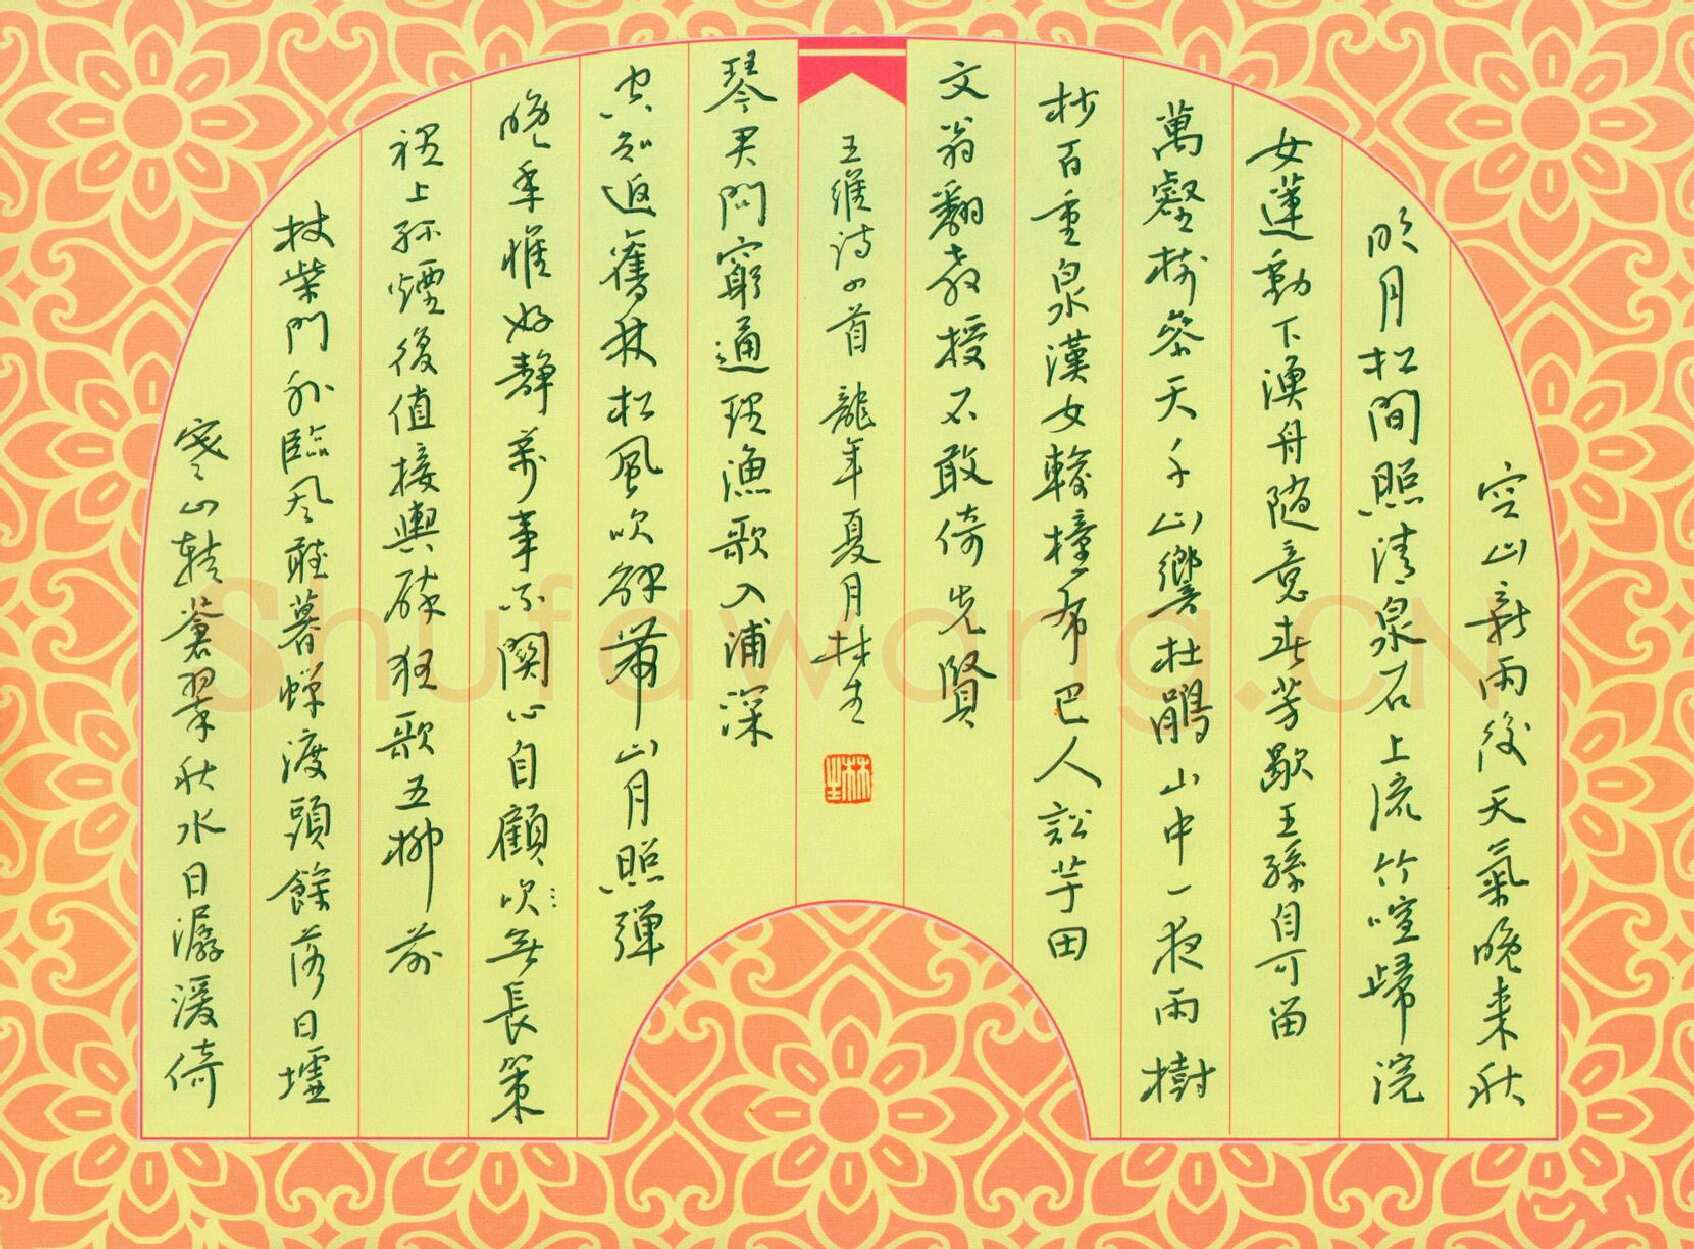 空山新雨後天氣晚来秋
明月松間照清泉石上流竹喧歸浣
女蓮動下漁舟随意春芳歇王孫自可留
萬壑樹參天千山響杜鵑山中一夜雨樹
杪百重泉漢女輸橦布巴人訟芋田
文翁翻教授不敢倚先賢
寒山轉蒼翠秋水日潺湲倚
杖柴門外臨風聽暮蟬渡頭餘落日墟
裡上孤煙復值接輿醉狂歌五柳前
晚年惟好靜萬事不關心自顧吹無長策
空知返舊林松風吹解帶山月照彈
琴君問窮通理漁歌入浦深
王維詩四首 龍年夏月林生
林生
Shufawang.CN